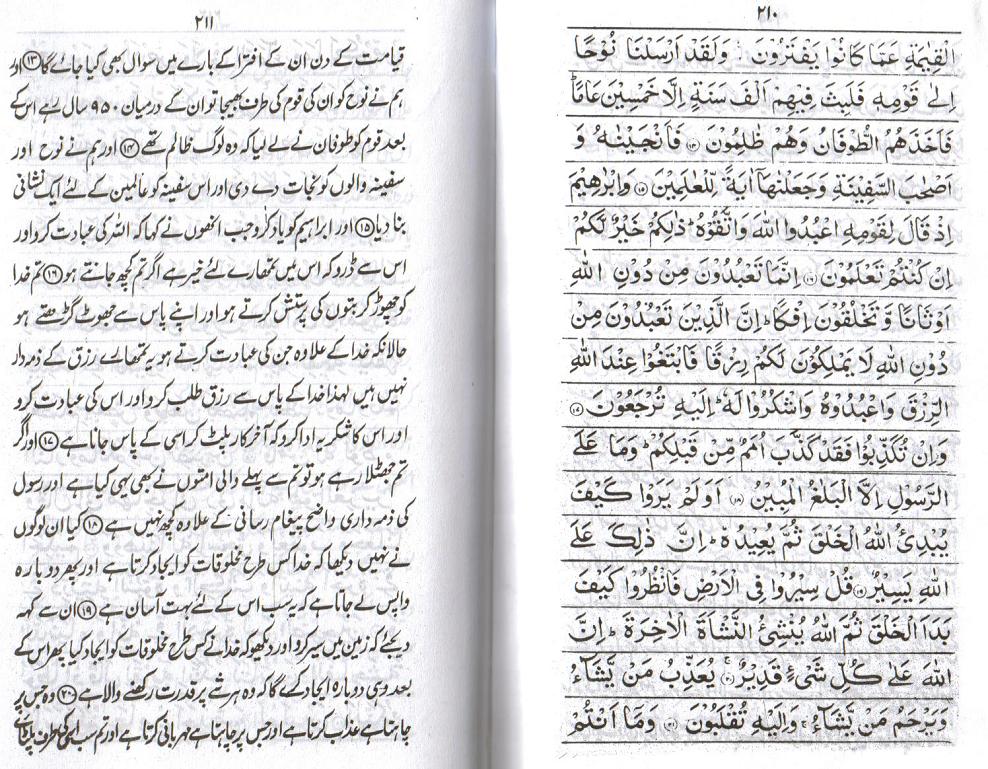 ۲۱۰
الْقِيٰمَةِ عَمَّا كَانُوْا يَفْتَرُوْنَ ۝ وَلَقَدْ اَرْسَلْنَا نُوْحًا
اِلٰى قَوْمِهٖ فَلَبِثَ فِيْهِمْ اَلْفَ سَنَةٍ اِلَّا خَمْسِيْنَ عَامًا
فَاَخَذَهُمُ الطُّوْفَانُ وَهُمْ ظٰلِمُوْنَ ۝۱۴ فَاَنْجَيْنٰهُ وَ
اَصْحٰبَ السَّفِيْنَةِ وَجَعَلْنٰهَآ اٰيَةً لِّلْعٰلَمِيْنَ ۝۱۵ وَاِبْرٰهِيْمَ
اِذْ قَالَ لِقَوْمِهِ اعْبُدُوا اللّٰهَ وَاتَّقُوْهُ ؕ ذٰلِكُمْ خَيْرٌ لَّكُمْ
اِنْ كُنْتُمْ تَعْلَمُوْنَ ۝۱۶ اِنَّمَا تَعْبُدُوْنَ مِنْ دُوْنِ اللّٰهِ
اَوْثَانًا وَّتَخْلُقُوْنَ اِفْكًا ؕ اِنَّ الَّذِيْنَ تَعْبُدُوْنَ مِنْ
دُوْنِ اللّٰهِ لَا يَمْلِكُوْنَ لَكُمْ رِزْقًا فَابْتَغُوْا عِنْدَ اللّٰهِ
الرِّزْقَ وَاعْبُدُوْهُ وَاشْكُرُوْا لَهٗ ؕ اِلَيْهِ تُرْجَعُوْنَ ۝۱۷
وَاِنْ تُكَذِّبُوْا فَقَدْ كَذَّبَ اُمَمٌ مِّنْ قَبْلِكُمْ ؕ وَمَا عَلَى
الرَّسُوْلِ اِلَّا الْبَلٰغُ الْمُبِيْنُ ۝۱۸ اَوَلَمْ يَرَوْا كَيْفَ
يُبْدِئُ اللّٰهُ الْخَلْقَ ثُمَّ يُعِيْدُهٗ ؕ اِنَّ ذٰلِكَ عَلَى
اللّٰهِ يَسِيْرٌ ۝۱۹ قُلْ سِيْرُوْا فِى الْاَرْضِ فَانْظُرُوْا كَيْفَ
بَدَاَ الْخَلْقَ ثُمَّ اللّٰهُ يُنْشِئُ النَّشْاَةَ الْاٰخِرَةَ ؕ اِنَّ
اللّٰهَ عَلٰى كُلِّ شَىْءٍ قَدِيْرٌ ۝۲۰ يُعَذِّبُ مَنْ يَّشَآءُ
وَيَرْحَمُ مَنْ يَّشَآءُ ۚ وَاِلَيْهِ تُقْلَبُوْنَ ۝۲۱ وَمَآ اَنْتُمْ
۲۱۱
قیامت کے دن ان کے افترا کے بارے میں سوال بھی کیا جائے گا ⑬ اور
ہم نے نوح کو ان کی قوم کی طرف بھیجا تو ان کے درمیان ۹۵۰ سال رہے اس کے
بعد قوم کو طوفان نے لے لیا کہ وہ لوگ ظالم تھے ⑭ اور ہم نے نوح اور
سفینہ والوں کو نجات دے دی اور اس سفینہ کو عالمین کے لئے ایک نشانی
بنا دیا ⑮ اور ابراہیم کو یاد کرو جب انھوں نے کہا کہ اللہ کی عبادت کرو اور
اس سے ڈرو کہ اس میں تمھارے لئے خیر ہے اگر تم کچھ جانتے ہو ⑯ تم خدا
کو چھوڑ کر بتوں کی پرستش کرتے ہو اور اپنے پاس سے جھوٹ گڑھتے ہو
حالانکہ خدا کے علاوہ جن کی عبادت کرتے ہو یہ تمھارے رزق کے ذمہ دار
نہیں ہیں لہذا خدا کے پاس سے رزق طلب کرو اور اس کی عبادت کرو
اور اس کا شکریہ ادا کرو کہ آخر کار پلٹ کر اسی کے پاس جانا ہے ⑰ اور اگر
تم جھٹلا رہے ہو تو تم سے پہلے والی امتوں نے بھی یہی کیا ہے اور رسول
کی ذمہ داری واضح پیغام رسانی کے علاوہ کچھ نہیں ہے ⑱ کیا ان لوگوں
نے نہیں دیکھا کہ خدا کس طرح مخلوقات کو ایجاد کرتا ہے اور پھر دوبارہ
واپس لے جاتا ہے کہ یہ سب اس کے لئے بہت آسان ہے ⑲ ان سے کہہ
دیجئے کہ زمین میں سیر کرو اور دیکھو کہ خدا نے کس طرح مخلوقات کو ایجاد کیا پھر اس کے
بعد وہی دوبارہ ایجاد کرے گا کہ وہ ہر شے پر قدرت رکھنے والا ہے ⑳ وہ جس پر
چاہتا ہے عذاب کرتا ہے اور جس پر چاہتا ہے مہربانی کرتا ہے اور تم سب اسی کی طرف